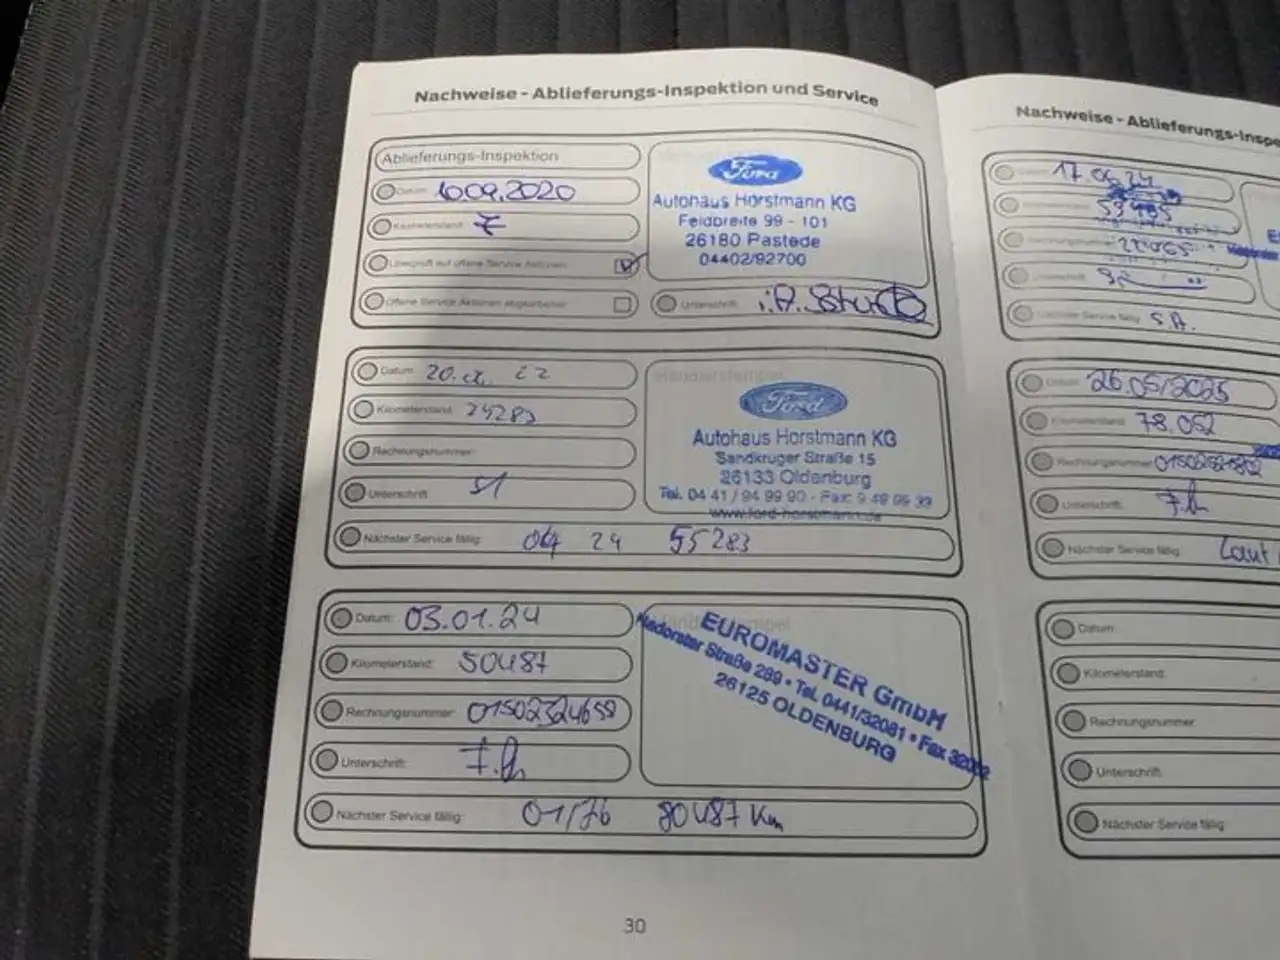 Nachweise - Ablieferungs-Inspektion und Service
Ablieferungs-Inspektion
Datum: 10.09.2020
Kilometerstand: 7
Überprüft auf offene Service Aktionen
Offene Service Aktionen abgearbeitet
Ford
Autohaus Horstmann KG
Feldbreite 99 - 101
26180 Rastede
04402/92700
Unterschrift: i.A.
Datum: 20. 22
Kilometerstand: 25283
Rechnungsnummer:
Unterschrift:
Nächster Service fällig: 04 24 55283
Händlerstempel
Ford
Autohaus Horstmann KG
Sandkruger Straße 15
26133 Oldenburg
Tel. 04 41 / 94 99 90 - Fax: 9 49 99 33
www.ford-horstmann.de
Datum: 03.01.24
Kilometerstand: 50487
Rechnungsnummer: 01502324659
Unterschrift:
Nächster Service fällig: 01/26 80487 Km
EUROMASTER GmbH
Nadorster Straße 289 • Tel. 0441/32081 • Fax
26125 OLDENBURG
30
Nachweise - Ablieferungs-Inspe
17.06.24
Nächster Service fällig: S.A.
Datum: 26.05/2025
Kilometerstand: 78.052
Rechnungsnummer:
Unterschrift:
Nächster Service fällig: Laut
Datum:
Kilometerstand:
Rechnungsnummer:
Unterschrift:
Nächster Service fällig: